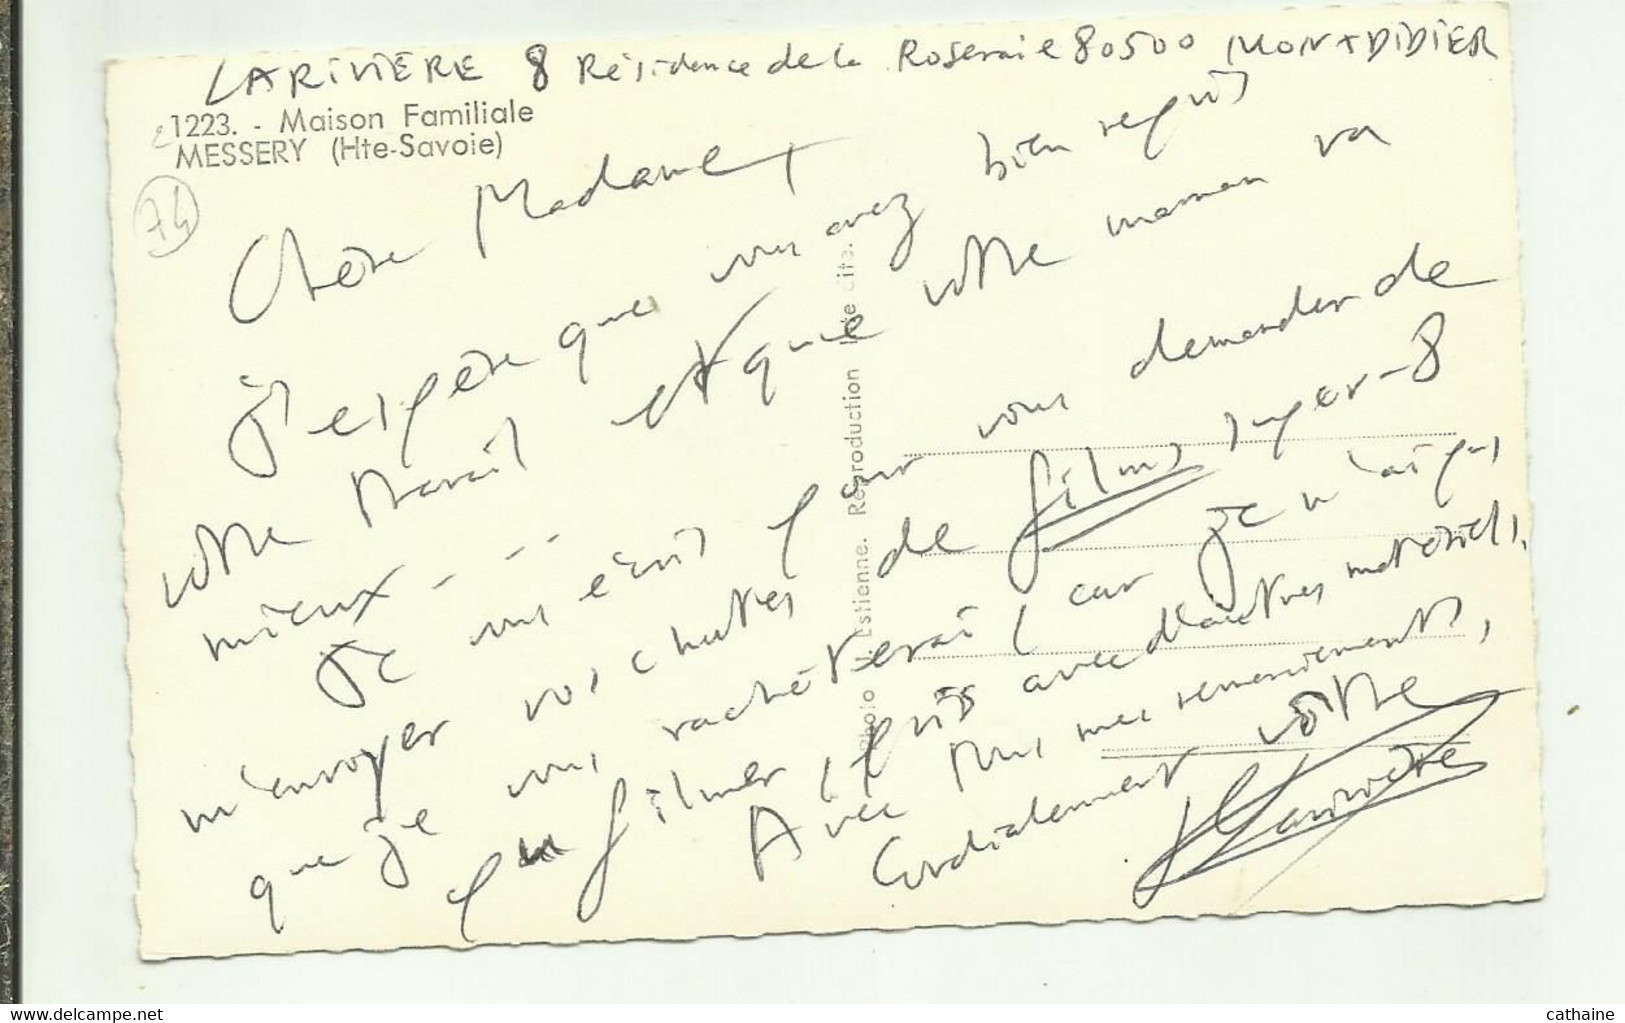 LARIVIERE 8 Résidence de la Roseraie 80500 MONTDIDIER
1223. - Maison Familiale
MESSERY (Hte-Savoie)
74
Chère Madame,
J'espère que vous avez bien repris
votre travail et que votre maman va
mieux - - -
Je vous écris pour vous demander de
m'envoyer vos chutes de films super-8
que je vous rachèterai car je n'ai pas
pu filmer, puis avec d'autres matériels.
Avec tous mes remerciements,
Cordialement vôtre
Larivière
Photo Estienne. Reproduction interdite.
www.delcampe.net
cathaine